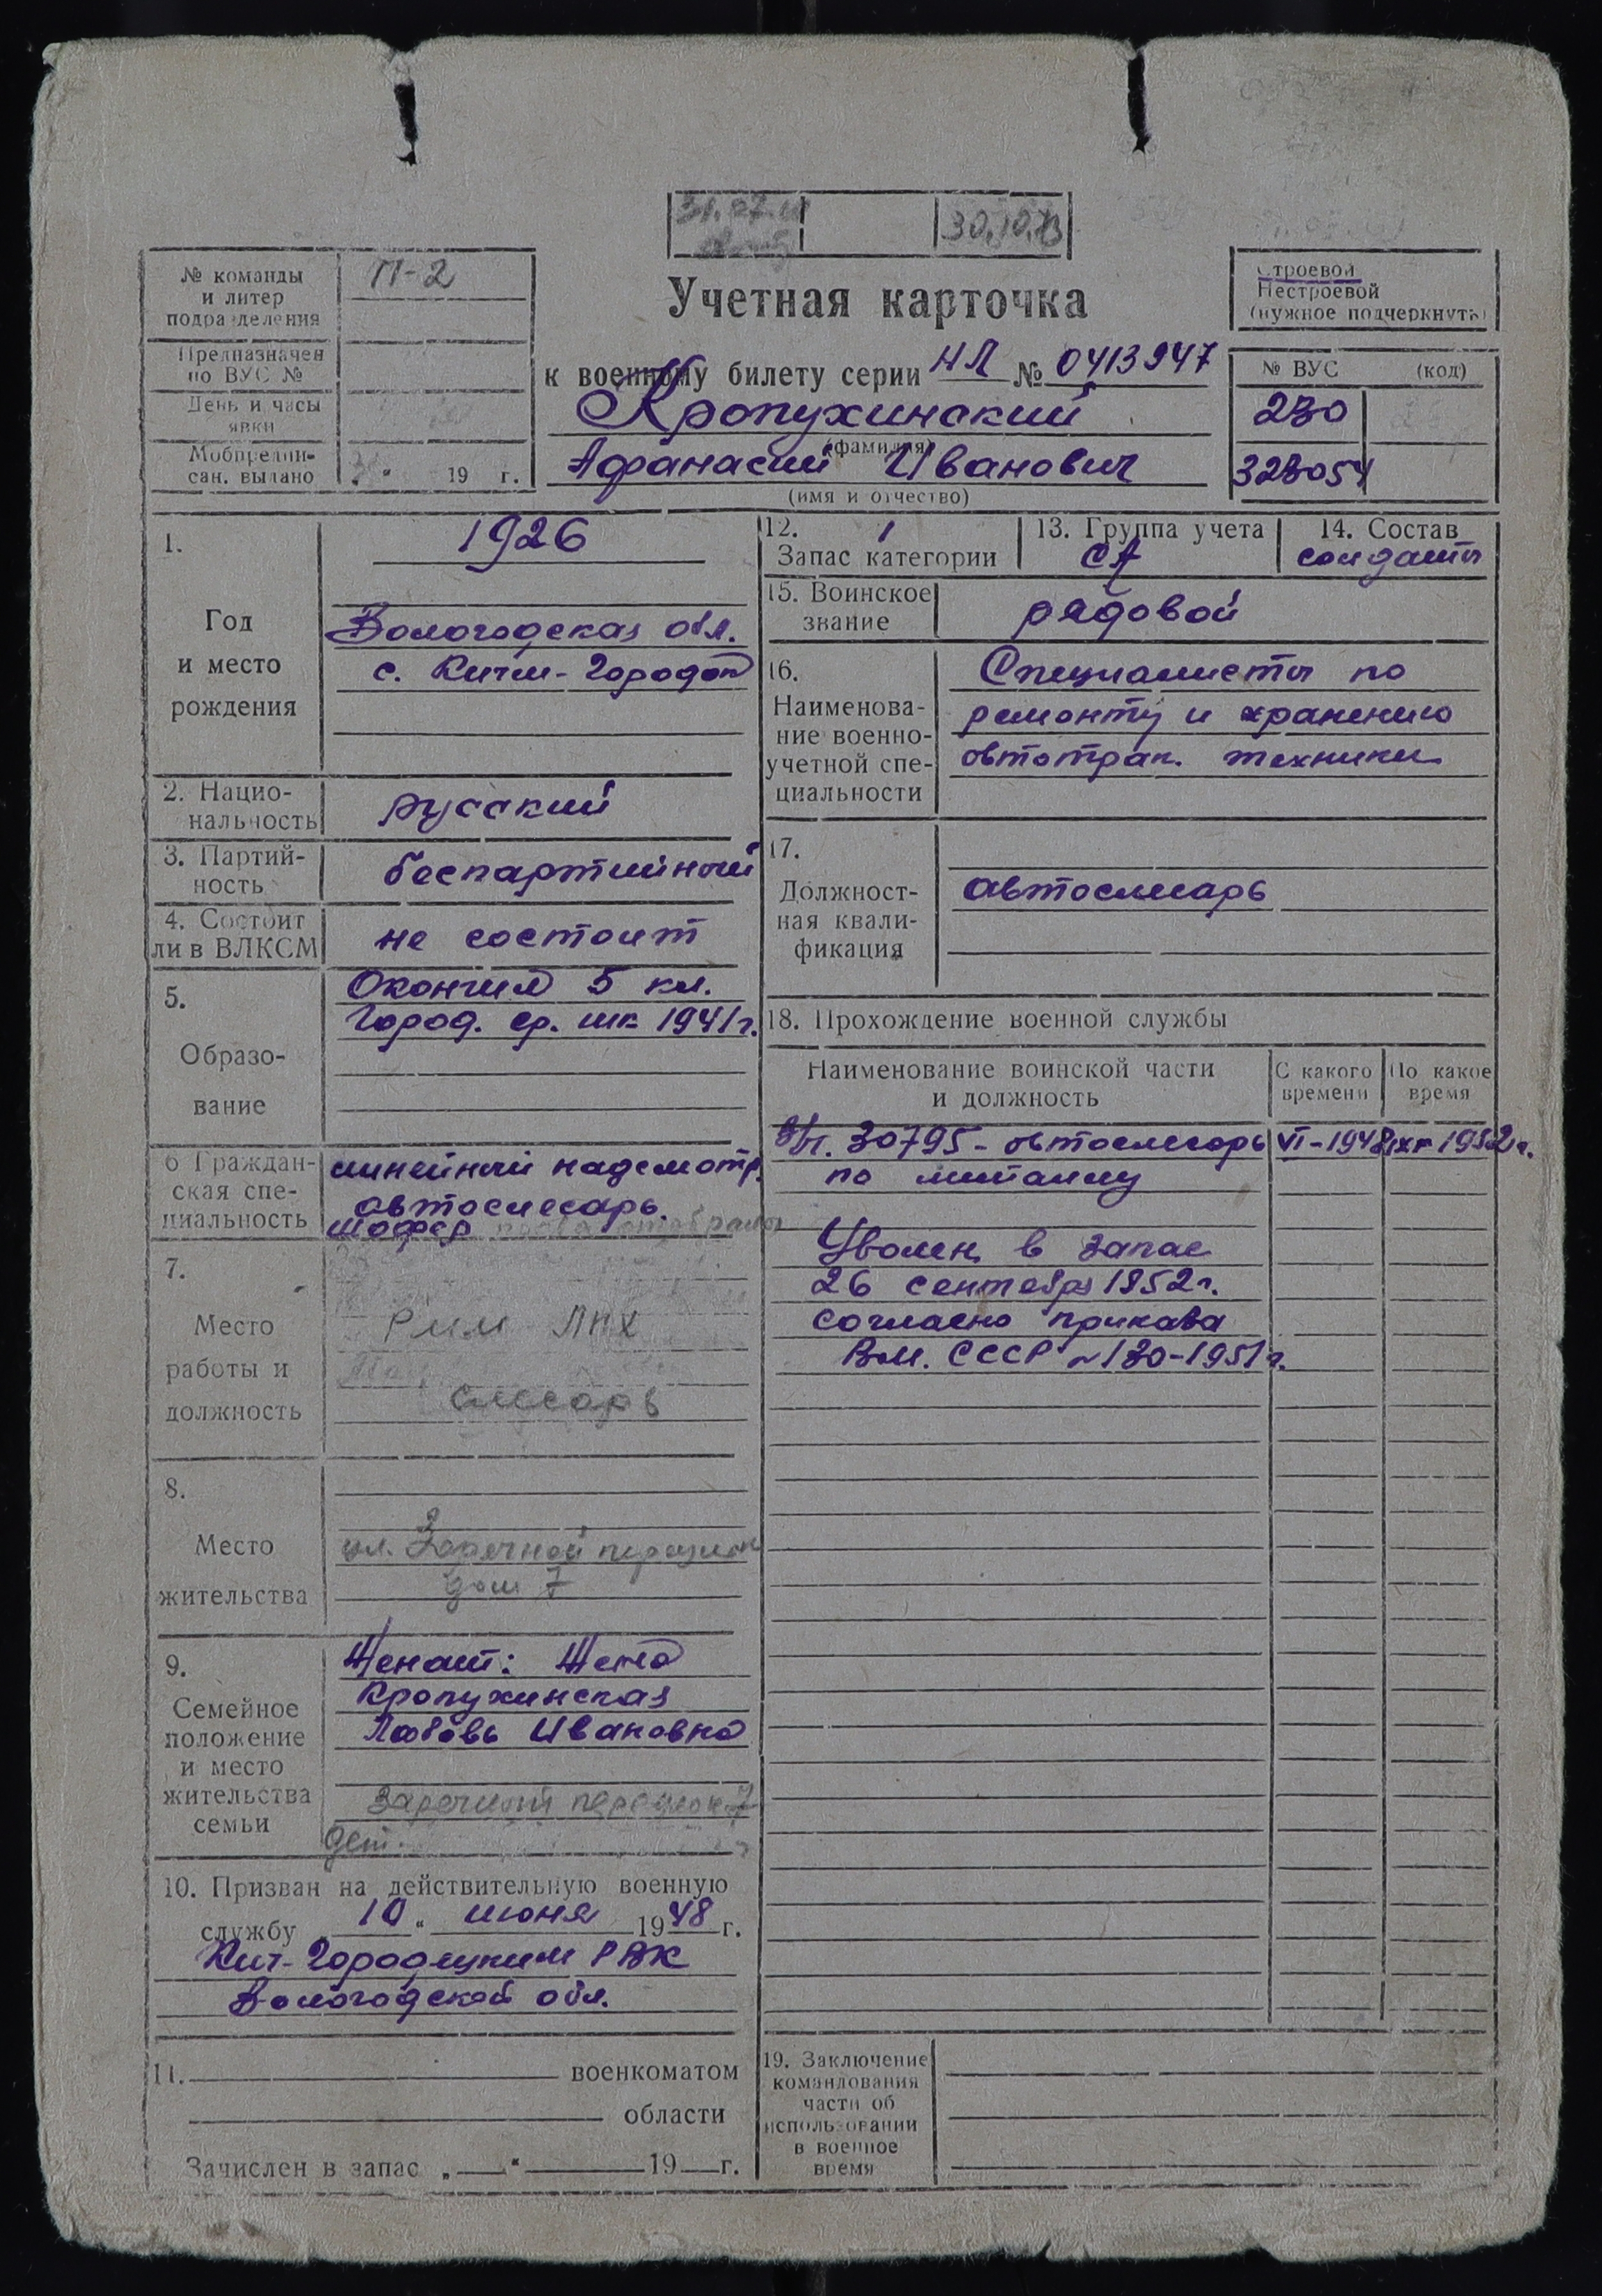 30.10.73
№ команды
и литер
подразделения
П-2
Предназначен
по ВУС №
День и часы
явки
Мобпредпи-
сан. выдано
„ “ 19 г.
Учетная карточка
к военному билету серии НЛ № 0413947
Кропухинский
(фамилия)
Афанасий Иванович
(имя и отчество)
Строевой
Нестроевой
(нужное подчеркнуть)
№ ВУС (код)
230
323054
1.
Год
и место
рождения
1926
Вологодская обл.
с. Кичм-Городок
2. Нацио-
нальность
русский
3. Партий-
ность
беспартийный
4. Состоит
ли в ВЛКСМ
не состоит
5.
Образо-
вание
Окончил 5 кл.
Город. ср. шк 1941г.
6 Граждан-
ская спе-
циальность
линейный надсмотр.
автослесарь.
шофер права отобраны
7.
Место
работы и
должность
РММ ЛПХ
слесарь
8.
Место
жительства
ул. Заречной переулок
дом 7
9.
Семейное
положение
и место
жительства
семьи
Женат: Жена
Кропухинская
Любовь Ивановна
Заречный переулок 7
дет.
10. Призван на действительную военную
службу „10“ июня 1948 г.
Кич-Городецким РВК
Вологодской обл.
11. военкоматом
области
Зачислен в запас „ “ 19 г.
12. 1
Запас категории
13. Группа учета
СА
14. Состав
солдаты
15. Воинское
звание
рядовой
16.
Наименова-
ние военно-
учетной спе-
циальности
Специалисты по
ремонту и хранению
автотрак. техники
17.
Должност-
ная квали-
фикация
автослесарь
18. Прохождение военной службы
Наименование воинской части
и должность
С какого
времени
По какое
время
в/ч. 30795 - автослесарь VI-1948 IX-1952г.
по
Уволен в запас
26 сентября 1952г.
согласно приказа
ВМ. СССР №130-1951г.
19. Заключение
командования
части об
использовании
в военное
время